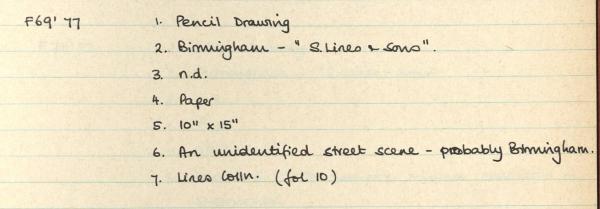 F69' 77 1. Pencil Drawing
2. Birmingham - "S. Lines & Sons".
3. n.d.
4. Paper
5. 10" x 15"
6. An unidentified street scene - probably Birmingham.
7. Lines Colln. (fol 10)